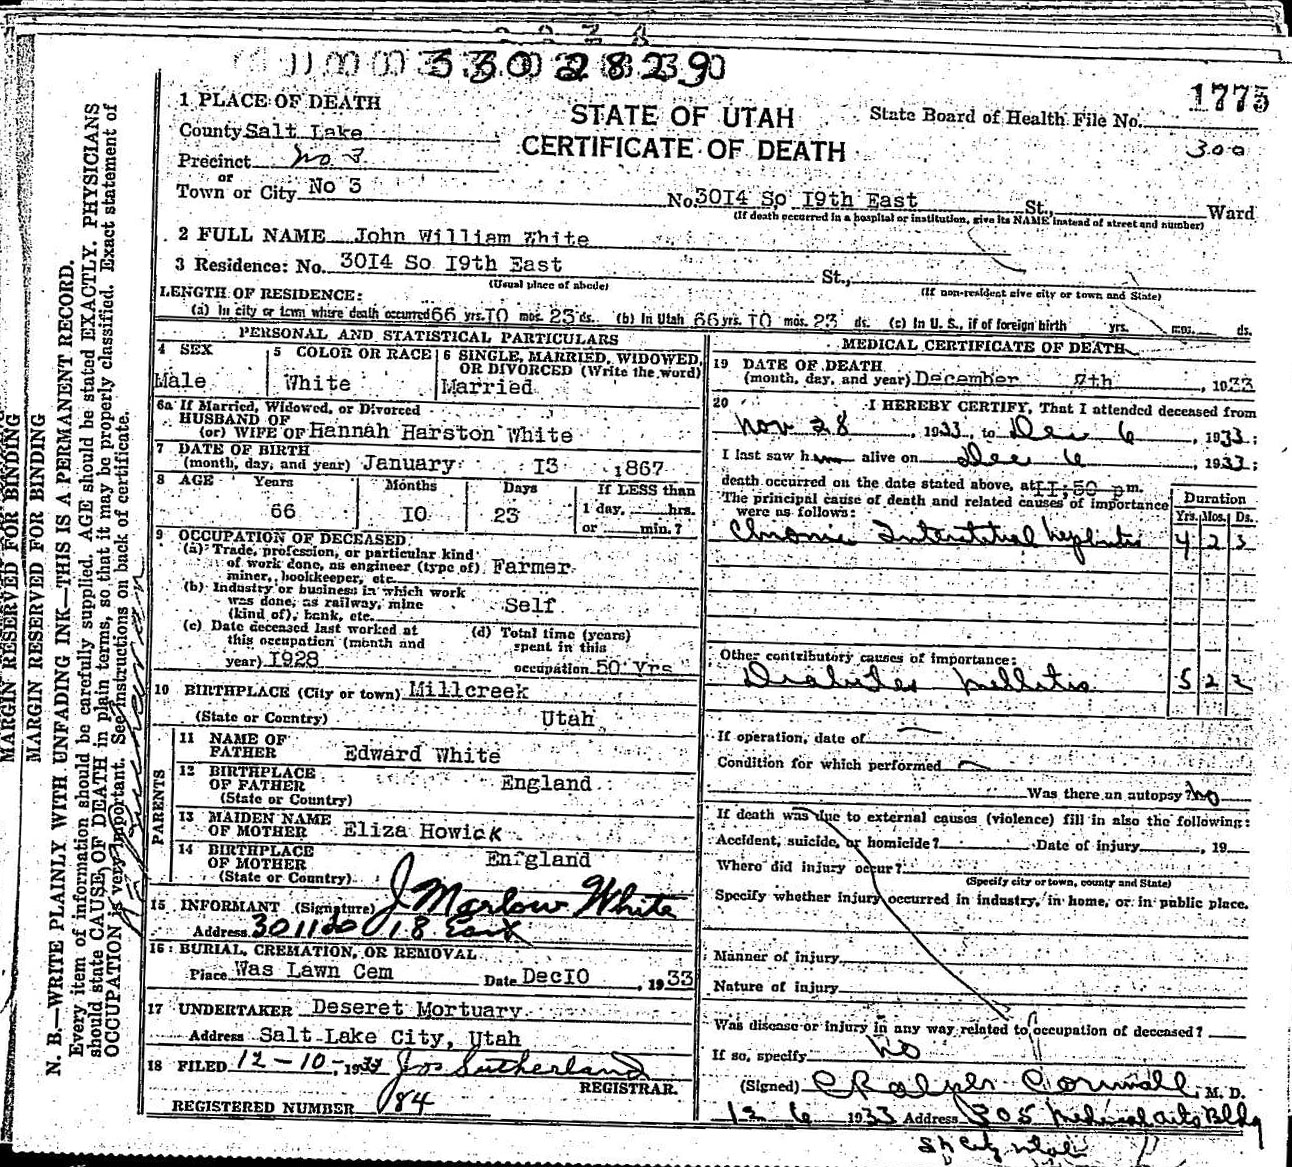 3302829
1775
1 PLACE OF DEATH
STATE OF UTAH
State Board of Health File No.
County Salt Lake
CERTIFICATE OF DEATH
300
Precinct No 3
or
Town or City No 3
No. 3014 So 19th East St., Ward
(If death occurred in a hospital or institution, give its NAME instead of street and number)
2 FULL NAME John William White
3 Residence: No. 3014 So 19th East St.,
(Usual place of abode)
(If non-resident give city or town and State)
LENGTH OF RESIDENCE:
(a) In city or town where death occurred 66 yrs. 10 mos. 23 ds. (b) In Utah 66 yrs. 10 mos. 23 ds. (c) In U. S., if of foreign birth yrs. mos. ds.
PERSONAL AND STATISTICAL PARTICULARS
4 SEX
Male
5 COLOR OR RACE
White
6 SINGLE, MARRIED, WIDOWED, OR DIVORCED (Write the word)
Married
6a If Married, Widowed, or Divorced
HUSBAND OF
(or) WIFE OF Hannah Harston White
7 DATE OF BIRTH
(month, day, and year) January 13 1867
8 AGE Years Months Days If LESS than
66 10 23 1 day, hrs.
or min.?
9 OCCUPATION OF DECEASED
(a) Trade, profession, or particular kind
of work done, as engineer (type of) Farmer
miner, bookkeeper, etc.
(b) Industry or business in which work
was done, as railway, mine Self
(kind of), bank, etc.
(c) Date deceased last worked at
this occupation (month and
year) 1928
(d) Total time (years)
spent in this
occupation 50 Yrs
10 BIRTHPLACE (City or town) Millcreek
(State or Country) Utah
PARENTS
11 NAME OF
FATHER Edward White
12 BIRTHPLACE
OF FATHER England
(State or Country)
13 MAIDEN NAME
OF MOTHER Eliza Howick
14 BIRTHPLACE
OF MOTHER England
(State or Country)
15 INFORMANT (Signature) J Marlow White
Address 3011 So 18 East
16 BURIAL, CREMATION, OR REMOVAL
Place Was Lawn Cem Date Dec 10, 1933
17 UNDERTAKER Deseret Mortuary
Address Salt Lake City, Utah
18 FILED 12-10-, 1933 Jos Sutherland
REGISTRAR.
REGISTERED NUMBER 184
MEDICAL CERTIFICATE OF DEATH
19 DATE OF DEATH
(month, day, and year) December 7th, 1933
20 I HEREBY CERTIFY, That I attended deceased from
Nov 28, 1933, to Dec 6, 1933;
I last saw him alive on Dec 6, 1933;
death occurred on the date stated above, at 11:50 p m.
The principal cause of death and related causes of importance
were as follows:
Duration
Yrs. Mos. Ds.
Chronic Interstitial Nephritis 4 2 3
Other contributory causes of importance:
Diabetes Mellitis 5 2 2
If operation, date of
Condition for which performed
Was there an autopsy? No
If death was due to external causes (violence) fill in also the following:
Accident, suicide, or homicide? Date of injury , 19
Where did injury occur?
(Specify city or town, county and State)
Specify whether injury occurred in industry, in home, or in public place.
Manner of injury
Nature of injury
Was disease or injury in any way related to occupation of deceased?
If so, specify No
(Signed) C Ralph Cornwall, M. D.
12 6 1933 Address 305 Medical Arts Bldg
S L City Utah
MARGIN RESERVED FOR BINDING
MARGIN RESERVED FOR BINDING
N. B.—WRITE PLAINLY WITH UNFADING INK—THIS IS A PERMANENT RECORD.
Every item of information should be carefully supplied. AGE should be stated EXACTLY. PHYSICIANS
should state CAUSE OF DEATH in plain terms, so that it may be properly classified. Exact statement of
OCCUPATION is very important. See instructions on back of certificate.